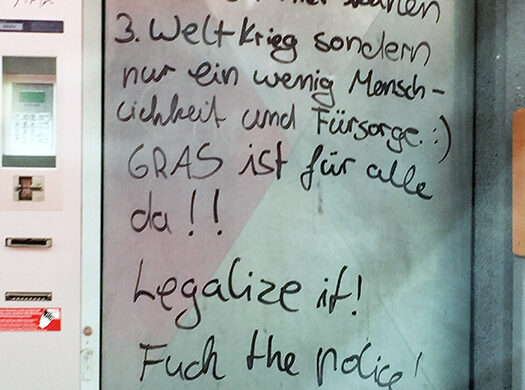 3. Weltkrieg sondern
nur ein wenig Mensch-
lichkeit und Fürsorge. :)
GRAS ist für alle
da!!
Legalize it!
Fuck the police!